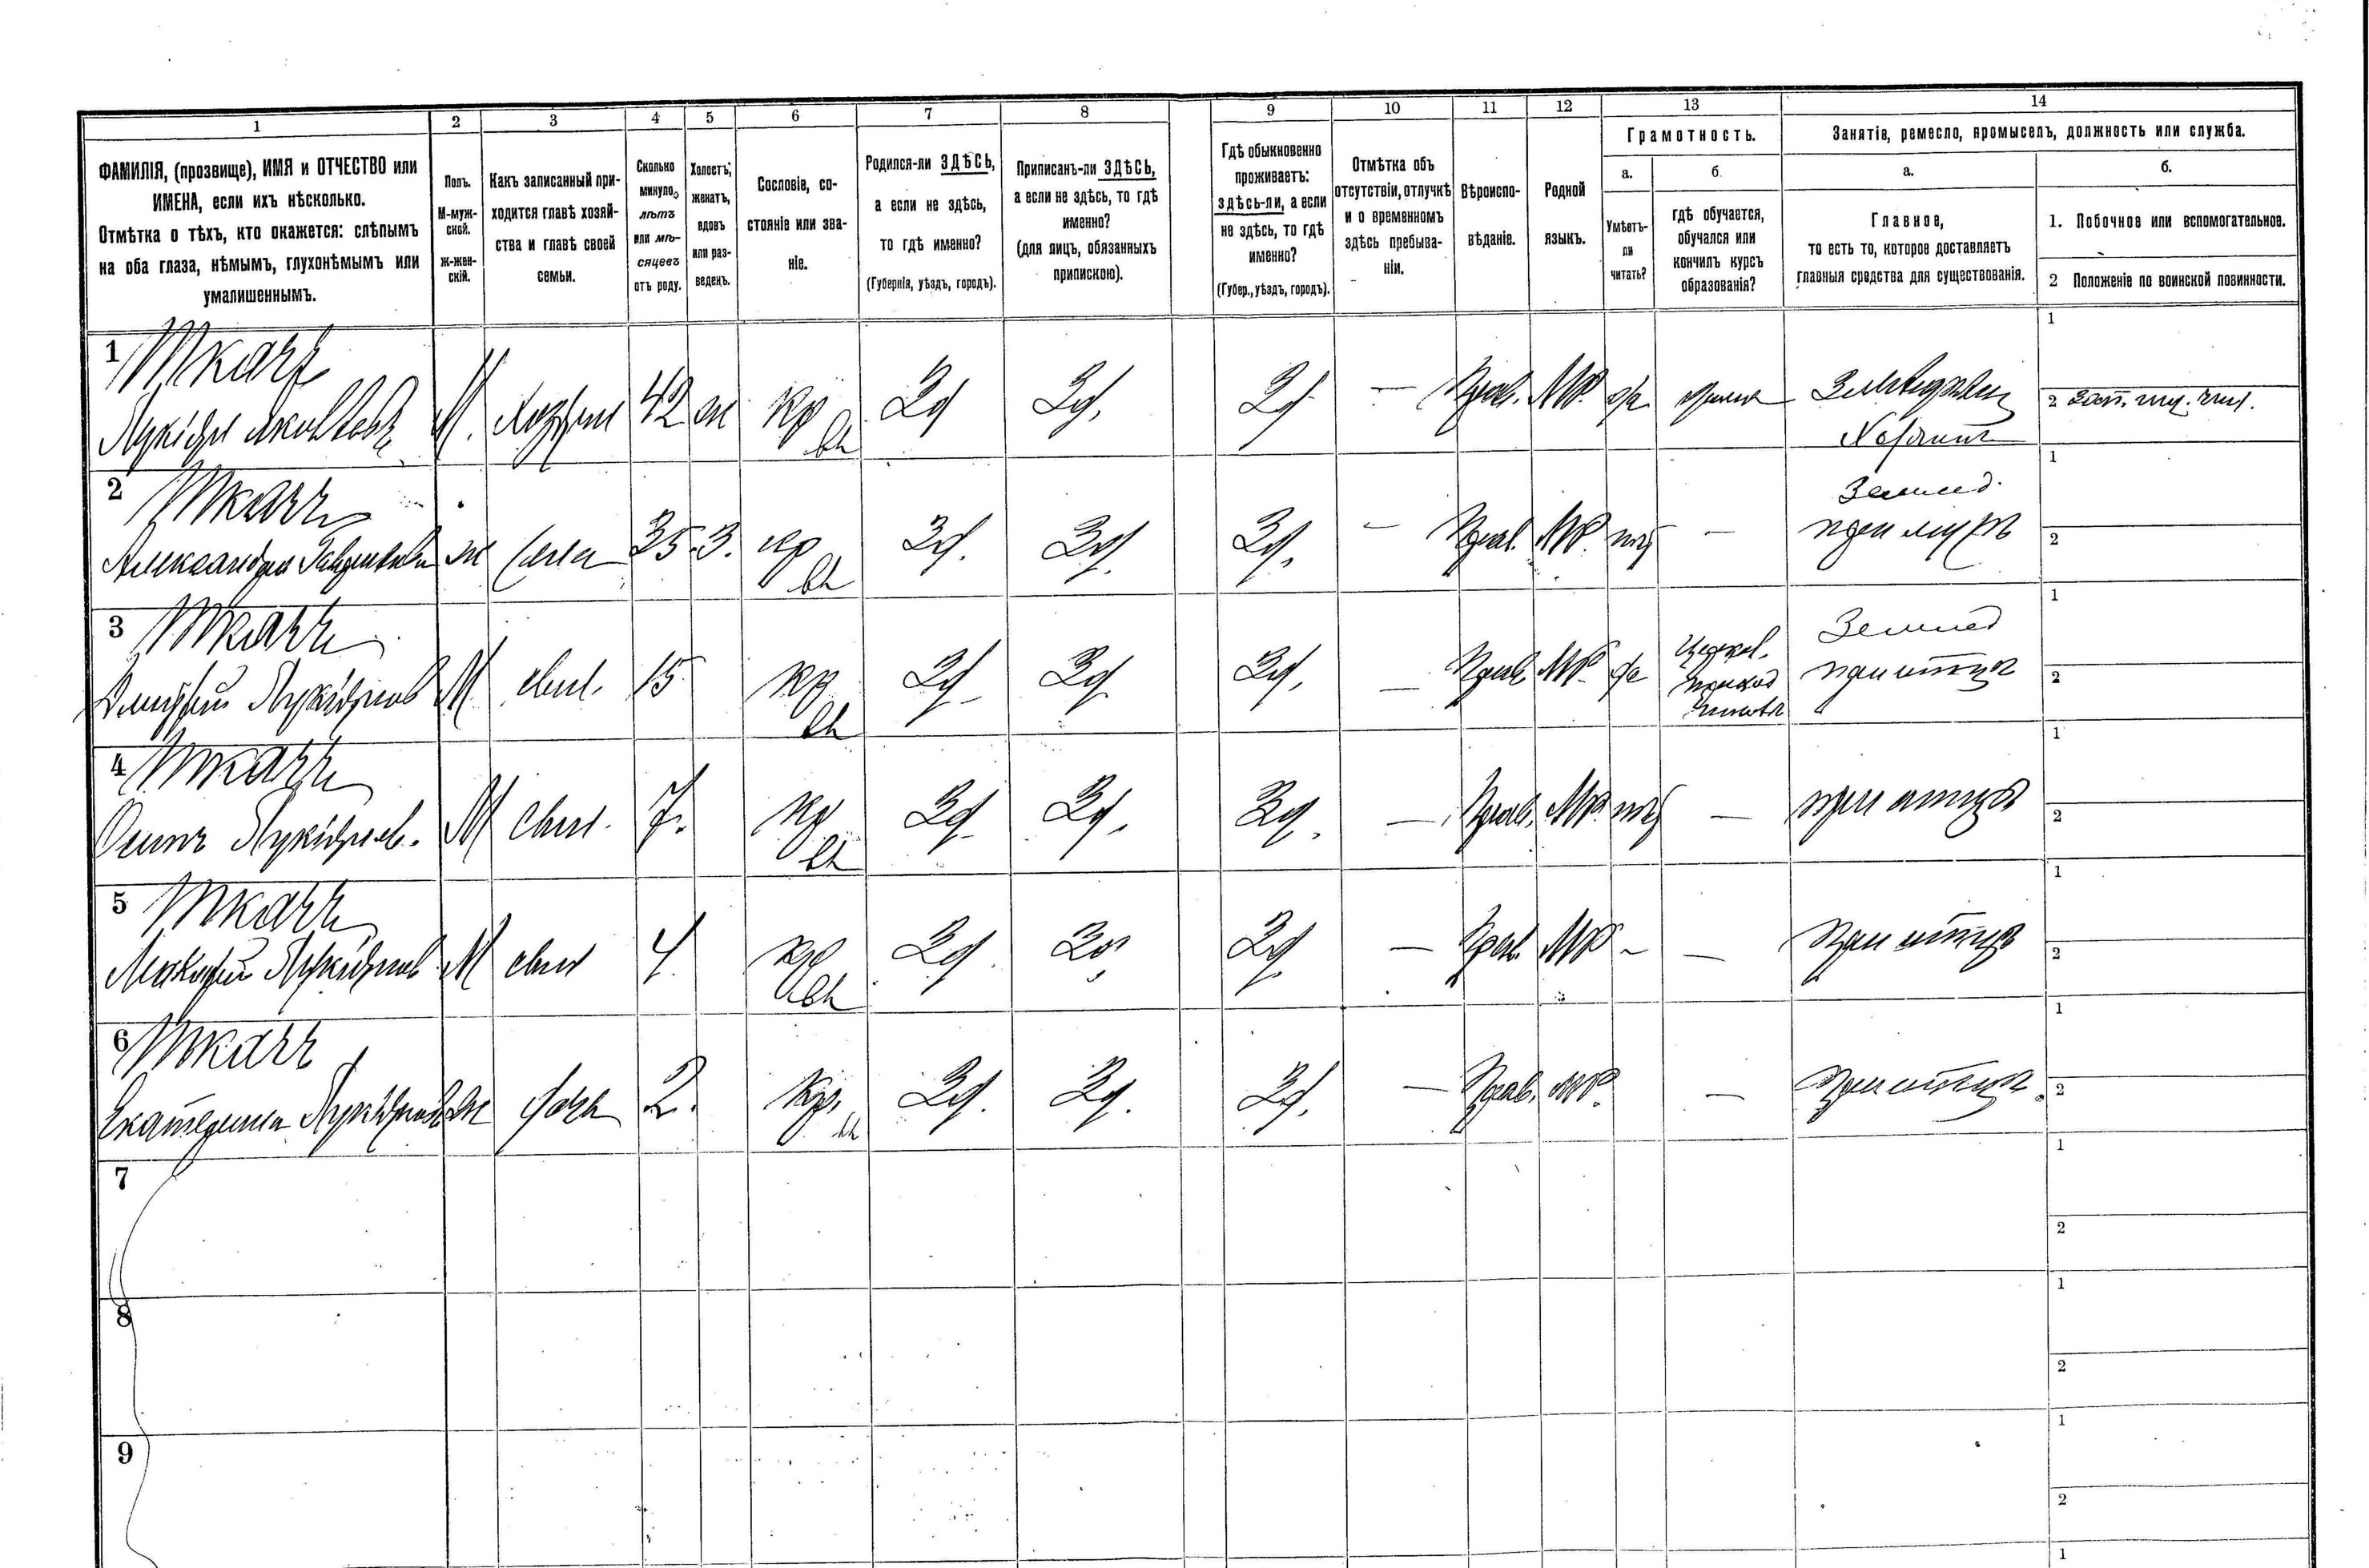 1
2
3
4
5
6
7
8
9
10
11
12
13
14
ФАМИЛІЯ, (прозвище), ИМЯ и ОТЧЕСТВО или
ИМЕНА, если ихъ нѣсколько.
Отмѣтка о тѣхъ, кто окажется: слѣпымъ
на оба глаза, нѣмымъ, глухонѣмымъ или
умалишеннымъ.
Полъ.
М-муж-
ской.
ж-жен-
скій.
Какъ записанный при-
ходится главѣ хозяй-
ства и главѣ своей
семьи.
Сколько
минуло
лѣтъ
или мѣ-
сяцевъ
отъ роду.
Холостъ,
женатъ,
вдовъ
или раз-
веденъ.
Сословіе, со-
стояніе или зва-
ніе.
Родился-ли ЗДѢСЬ,
а если не здѣсь,
то гдѣ именно?
(Губернія, уѣздъ, городъ).
Приписанъ-ли ЗДѢСЬ,
а если не здѣсь, то гдѣ
именно?
(для лицъ, обязанныхъ
припискою).
Гдѣ обыкновенно
проживаетъ:
здѣсь-ли, а если
не здѣсь, то гдѣ
именно?
(Губер., уѣздъ, городъ).
Отмѣтка объ
отсутствіи, отлучкѣ
и о временномъ
здѣсь пребыва-
ніи.
Вѣроиспо-
вѣданіе.
Родной
языкъ.
Грамотность.
а.
Умѣетъ-
ли
читать?
б.
гдѣ обучается,
обучался или
кончилъ курсъ
образованія?
Занятіе, ремесло, промыселъ, должность или служба.
а.
Главное,
то есть то, которое доставляетъ
главныя средства для существованія.
б.
1. Побочное или вспомогательное.
2 Положеніе по воинской повинности.
1 Ткачъ
М. 42 ж кр Зд Зд. Зд — Прав. МР. да
Хозяинъ
1
2
2 Ткачъ
Александра ж жена 35 З. кр Зд. Зд. Зд. — Прав. МР. нѣтъ —
Землед.
при мужѣ
1
2
3 Ткачъ
Дмитрій М сынъ. 15 кр Зд Зд Зд. — Прав. МР. да
Церков.
Приход
Землед
при отцѣ
1
2
4 Ткачъ
М сынъ. 7. кр Зд Зд. Зд. — Прав. МР. нѣтъ —
при отцѣ
1
2
5 Ткачъ
Макарій М сынъ 4. кр Зд. Зд. Зд. — Прав. МР - —
при отцѣ
1
2
6 Ткачъ
Екатерина ж дочь 2. кр. Зд. Зд. Зд. — Прав. МР. —
при отцѣ.
1
2
7
1
2
8
1
2
9
1
2
1